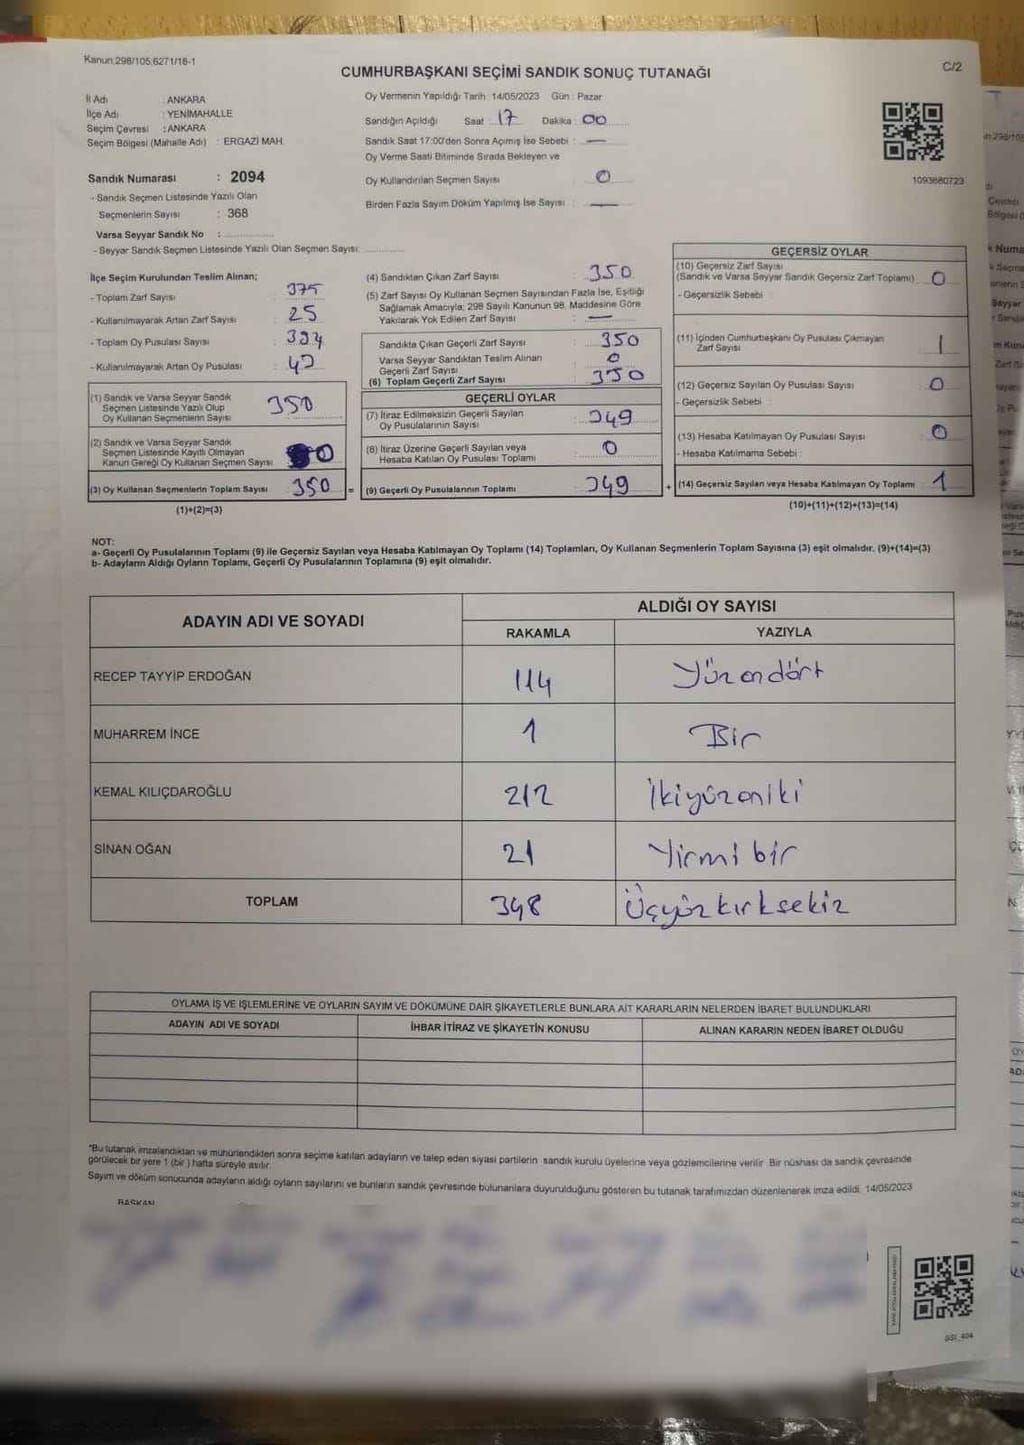 Kanun:298/105:6271/18-1
C/2
CUMHURBAŞKANI SEÇİMİ SANDIK SONUÇ TUTANAĞI
İl Adı : ANKARA
İlçe Adı : YENİMAHALLE
Seçim Çevresi : ANKARA
Seçim Bölgesi (Mahalle Adı) : ERGAZİ MAH.
Sandık Numarası : 2094
- Sandık Seçmen Listesinde Yazılı Olan
Seçmenlerin Sayısı : 368
Varsa Seyyar Sandık No :
- Seyyar Sandık Seçmen Listesinde Yazılı Olan Seçmen Sayısı:
Oy Vermenin Yapıldığı Tarih: 14/05/2023 Gün : Pazar
Sandığın Açıldığı Saat : 17 Dakika : 00
Sandık Saat 17:00'den Sonra Açımış İse Sebebi : —
Oy Verme Saati Bitiminde Sırada Bekleyen ve
Oy Kullandırılan Seçmen Sayısı : 0
Birden Fazla Sayım Döküm Yapılmış İse Sayısı : —
1093680723
İlçe Seçim Kurulundan Teslim Alınan;
- Toplam Zarf Sayısı : 375
- Kullanılmayarak Artan Zarf Sayısı : 25
- Toplam Oy Pusulası Sayısı :
- Kullanılmayarak Artan Oy Pusulası :
(1) Sandık ve Varsa Seyyar Sandık
Seçmen Listesinde Yazılı Olup
Oy Kullanan Seçmenlerin Sayısı : 350
(2) Sandık ve Varsa Seyyar Sandık
Seçmen Listesinde Kayıtlı Olmayan
Kanun Gereği Oy Kullanan Seçmen Sayısı 0
(3) Oy Kullanan Seçmenlerin Toplam Sayısı 350 =
(1)+(2)=(3)
(4) Sandıktan Çıkan Zarf Sayısı : 350
(5) Zarf Sayısı Oy Kullanan Seçmen Sayısından Fazla İse, Eşitliği
Sağlamak Amacıyla; 298 Sayılı Kanunun 98. Maddesine Göre
Yakılarak Yok Edilen Zarf Sayısı : —
Sandıkta Çıkan Geçerli Zarf Sayısı : 350
Varsa Seyyar Sandıktan Teslim Alınan
Geçerli Zarf Sayısı : 0
(6) Toplam Geçerli Zarf Sayısı : 350
GEÇERLİ OYLAR
(7) İtiraz Edilmeksizin Geçerli Sayılan
Oy Pusulalarının Sayısı : 349
(8) İtiraz Üzerine Geçerli Sayılan veya
Hesaba Katılan Oy Pusulası Toplamı : 0
(9) Geçerli Oy Pusulalarının Toplamı : 349 +
GEÇERSİZ OYLAR
(10) Geçersiz Zarf Sayısı
(Sandık ve Varsa Seyyar Sandık Geçersiz Zarf Toplamı) : 0
- Geçersizlik Sebebi :
(11) İçinden Cumhurbaşkanı Oy Pusulası Çıkmayan
Zarf Sayısı : 1
(12) Geçersiz Sayılan Oy Pusulası Sayısı : 0
- Geçersizlik Sebebi :
(13) Hesaba Katılmayan Oy Pusulası Sayısı : 0
- Hesaba Katılmama Sebebi :
(14) Geçersiz Sayılan veya Hesaba Katılmayan Oy Toplamı : 1
(10)+(11)+(12)+(13)=(14)
NOT:
a- Geçerli Oy Pusulalarının Toplamı (9) ile Geçersiz Sayılan veya Hesaba Katılmayan Oy Toplamı (14) Toplamları, Oy Kullanan Seçmenlerin Toplam Sayısına (3) eşit olmalıdır. (9)+(14)=(3)
b- Adayların Aldığı Oyların Toplamı, Geçerli Oy Pusulalarının Toplamına (9) eşit olmalıdır.
ADAYIN ADI VE SOYADI
ALDIĞI OY SAYISI
RAKAMLA YAZIYLA
RECEP TAYYİP ERDOĞAN 114 Yüzondört
MUHARREM İNCE 1 Bir
KEMAL KILIÇDAROĞLU 212 İkiyüzoniki
SİNAN OĞAN 21 Yirmibir
TOPLAM 348 Üçyüzkırksekiz
OYLAMA İŞ VE İŞLEMLERİNE VE OYLARIN SAYIM VE DÖKÜMÜNE DAİR ŞİKAYETLERLE BUNLARA AİT KARARLARIN NELERDEN İBARET BULUNDUKLARI
ADAYIN ADI VE SOYADI İHBAR İTİRAZ VE ŞİKAYETİN KONUSU ALINAN KARARIN NEDEN İBARET OLDUĞU
*Bu tutanak imzalandıktan ve mühürlendikten sonra seçime katılan adayların ve talep eden siyasi partilerin sandık kurulu üyelerine veya gözlemcilerine verilir. Bir nüshası da sandık çevresinde
görülecek bir yere 1 (bir ) hafta süreyle asılır.
Sayım ve döküm sonucunda adayların aldığı oyların sayılarını ve bunların sandık çevresinde bulunanlara duyurulduğunu gösteren bu tutanak tarafımızdan düzenlenerek imza edildi. 14/05/2023
BAŞKAN